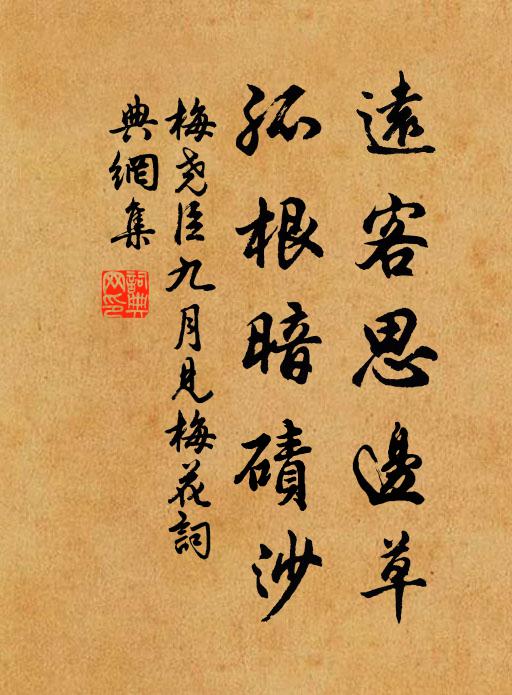 遠客思邊草
孤根暗磧沙
梅堯臣九月見梅花詞
典網集
詞典網印